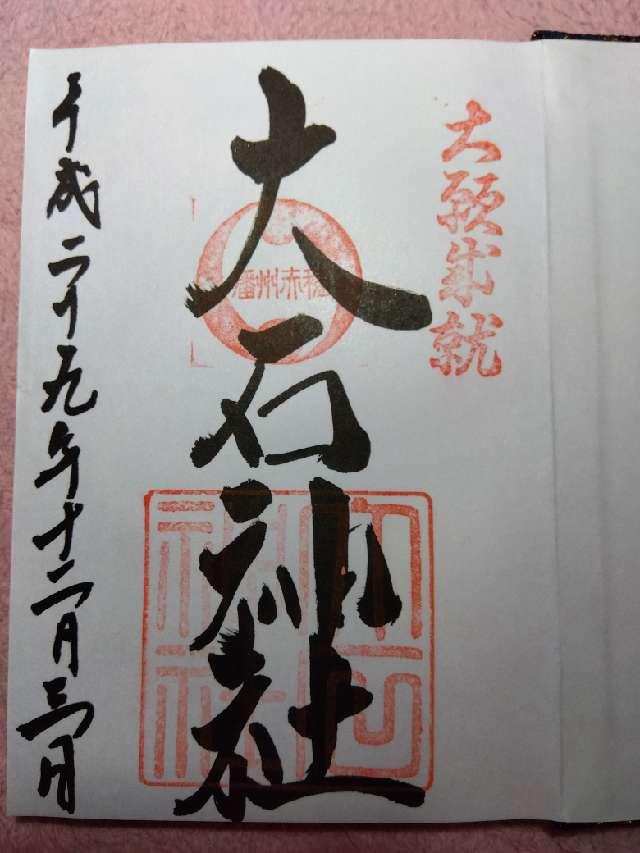 大願成就
大石神社
播州赤穂
大石神社
平成二十九年十二月三日